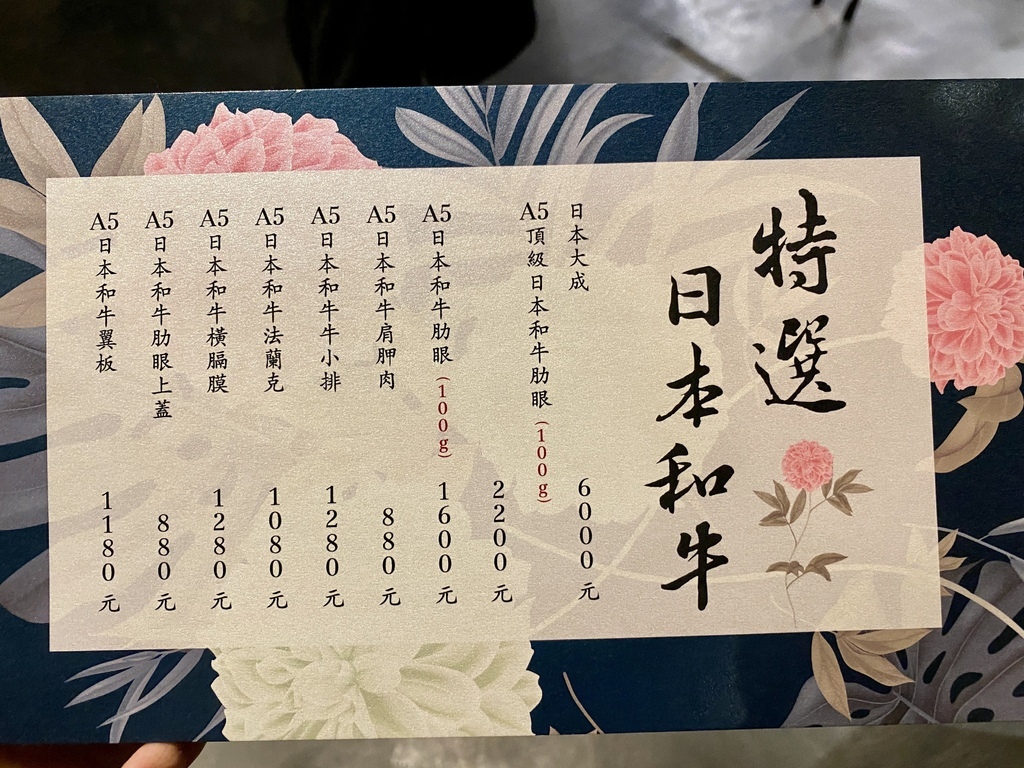 特選
日本和牛
日本大成 6000元
A5頂級日本和牛肋眼(100g)
2200元
A5日本和牛肋眼(100g) 1600元
A5日本和牛肩胛肉 880元
A5日本和牛牛小排 1280元
A5日本和牛法蘭克 1080元
A5日本和牛橫膈膜 1280元
A5日本和牛肋眼上蓋 880元
A5日本和牛翼板 1180元